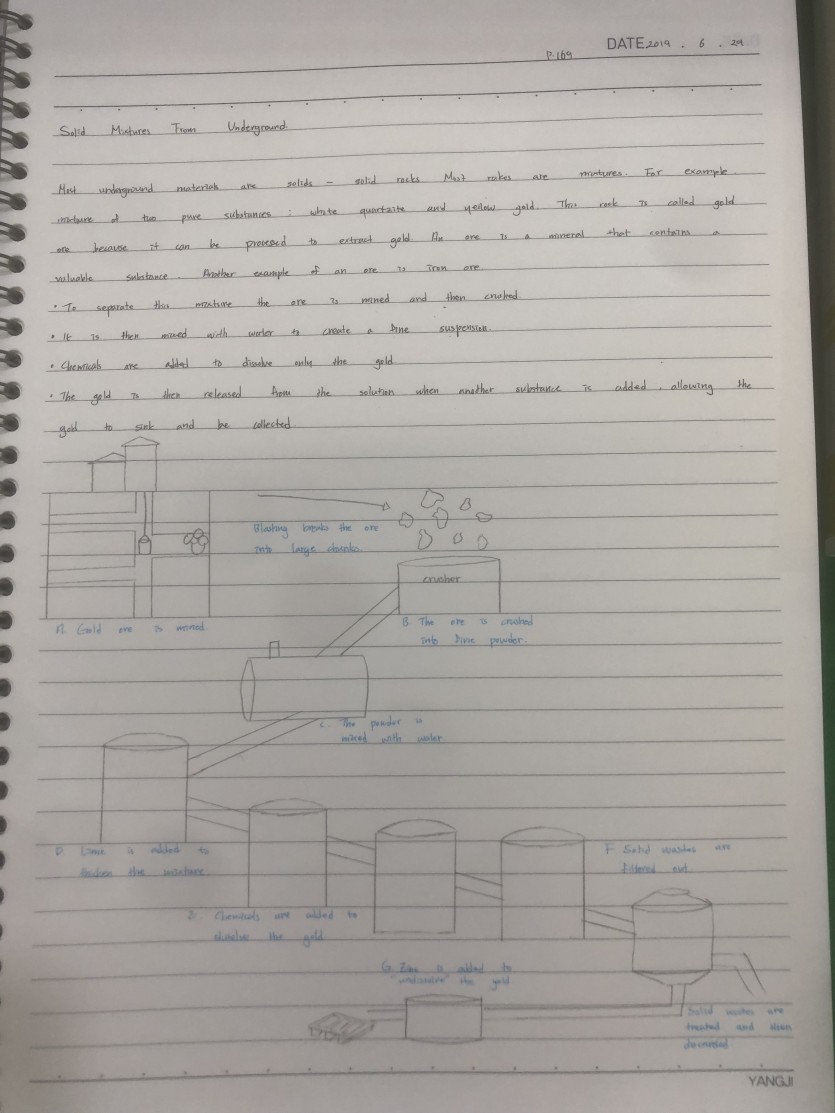 P.169
DATE 2019 . 6 . 29
Solid Mixtures From Underground.
Most underground materials are solids - solid rocks Most rakes are mixtures. For example.
mixture of two pure substances : white quartzite and yellow gold. This rock is called gold
ore because it can be processed to extract gold. An ore is a mineral that contains a
valuable substance. Another example of an ore is Iron ore
• To separate this mixture the ore is mined and then crushed.
• It is then mixed with water to create a fine suspension.
• Chemicals are added to dissolve only the gold
• The gold is then released from the solution when another substance is added, allowing the
gold to sink and be collected.
Blasting breaks the ore
into large chunks.
crusher
A. Gold ore is mined
B. The ore is crushed
into fine powder.
C. The powder is
mixed with water
D. Lime is added to
thicken the mixture
F. Solid wastes are
filtered out
Chemicals are added to
dissolve the gold
G. Zinc is added to
"undissolve" the gold
Solid wastes are
treated and then
discarded
YANGJI